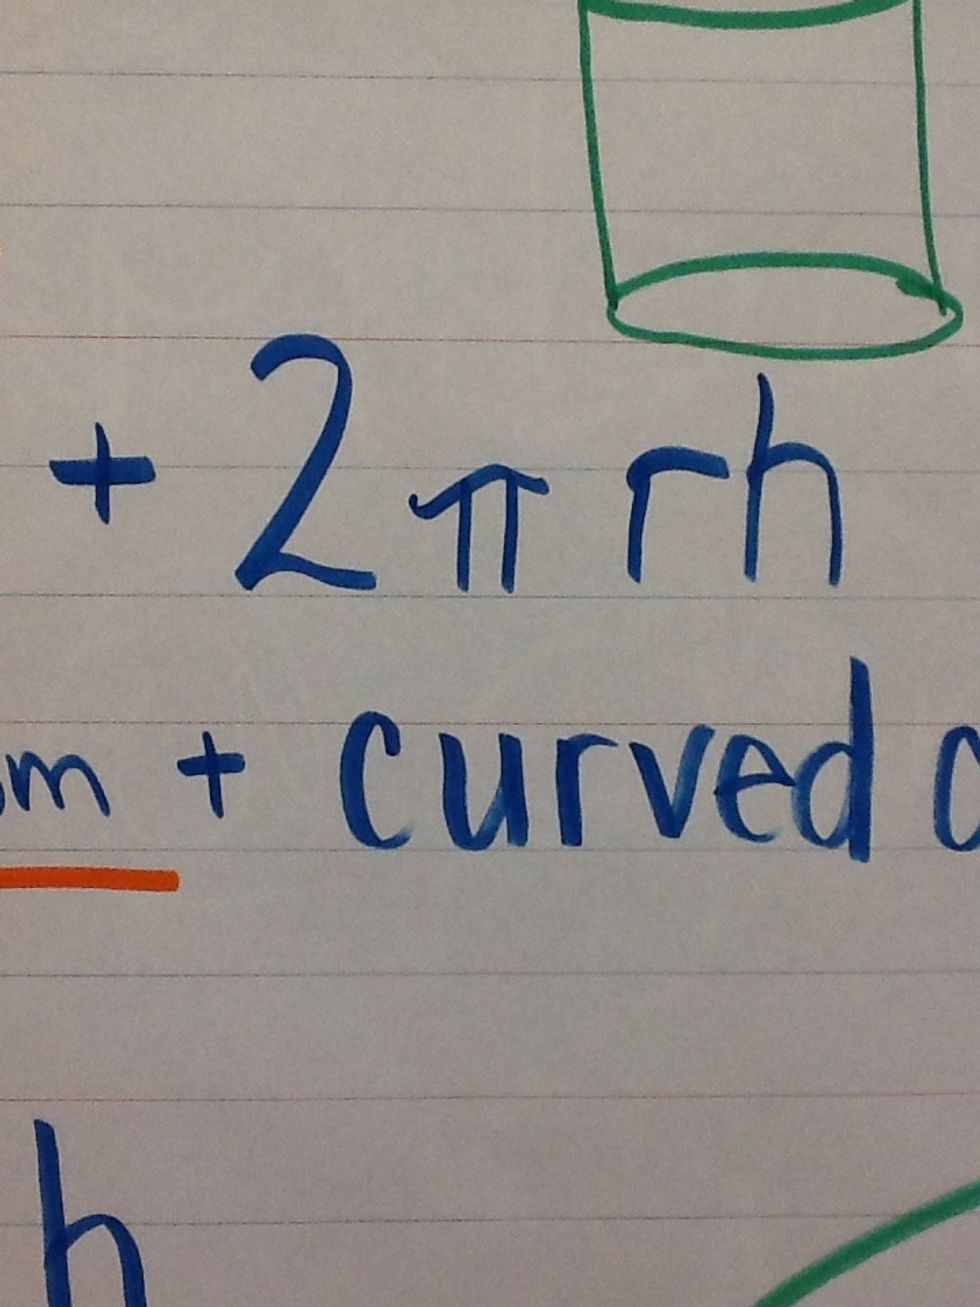 + 2πrh
m + curved
h